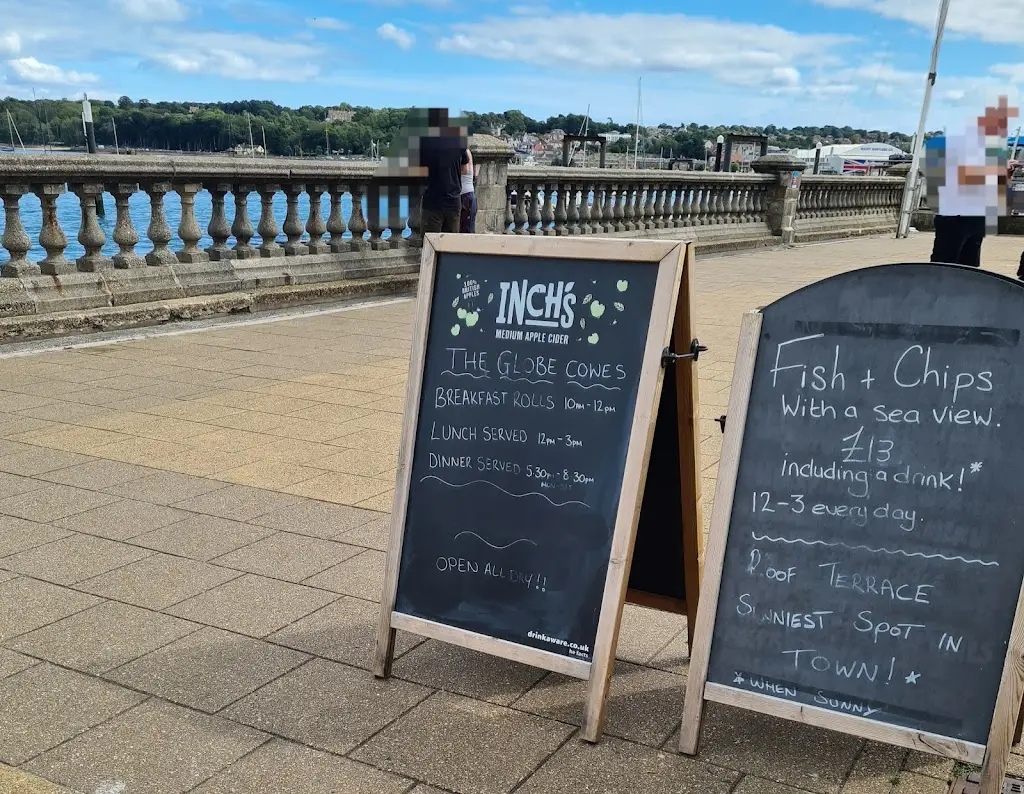 100% BRITISH APPLES
INCH'S
MEDIUM APPLE CIDER
THE GLOBE COWES
BREAKFAST ROLLS 10AM-12PM
LUNCH SERVED 12PM-3PM
DINNER SERVED 5.30PM-8.30PM
OPEN ALL DAY!!
drinkaware.co.uk
Fish + Chips
With a sea view.
£13
including a drink!*
12-3 every day.
ROOF TERRACE
SUNNIEST SPOT IN
TOWN! *
*WHEN SUNNY